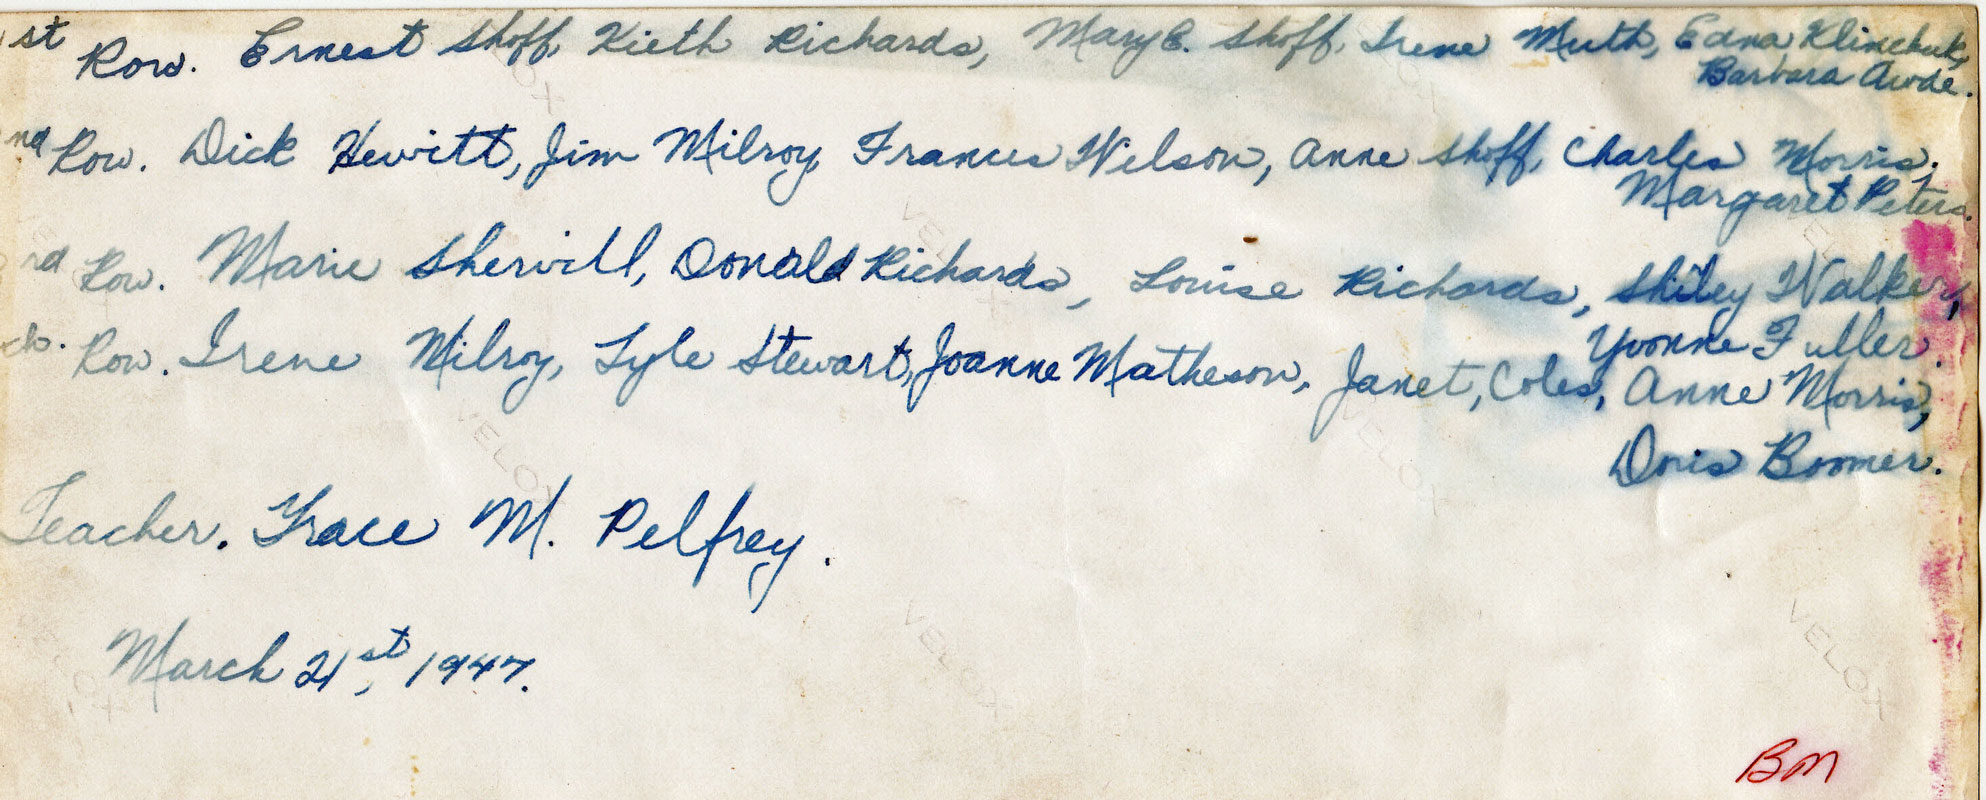 st Row. Ernest Shoff, Kieth Richards, Mary E. Shoff, Irene Muth, Edna Klinchuk,
Barbara Awde.
nd Row. Dick Hewitt, Jim Milroy, Frances Wilson, Anne Shoff, Charles Morris,
Margaret Peters.
rd Row. Marie Shervill, Donald Richards, Louise Richards, Shiley Walker,
Yvonne Fuller.
th. Row. Irene Milroy, Lyle Stewart, Joanne Matheson, Janet, Coles, Anne Morris,
Doris Boomer.
Teacher. Grace M. Pelfrey.
March 21st, 1947.
BM
VELOX
VELOX
VELOX
VELOX
VELOX
VELOX